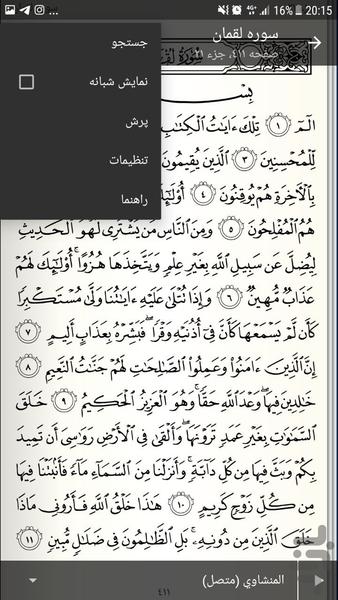 16% 20:15
سوره لقمان
صفحه ٤١١، جزء ٢١
جستجو
نمایش شبانه
پرش
تنظیمات
راهنما
الٓمٓ ١ تِلْكَ ءَايَٰتُ ٱلْكِتَٰبِ
لِّلْمُحْسِنِينَ ٣ ٱلَّذِينَ يُقِيمُونَ
بِٱلْأٓخِرَةِ هُمْ يُوقِنُونَ ٤
هُمُ ٱلْمُفْلِحُونَ ٥ وَمِنَ ٱلنَّاسِ مَن يَشْتَرِى لَهْوَ ٱلْحَدِيثِ
لِيُضِلَّ عَن سَبِيلِ ٱللَّهِ بِغَيْرِ عِلْمٍ وَيَتَّخِذَهَا هُزُوًا ۚ أُو۟لَٰٓئِكَ لَهُمْ
عَذَابٌ مُّهِينٌ ٦ وَإِذَا تُتْلَىٰ عَلَيْهِ ءَايَٰتُنَا وَلَّىٰ مُسْتَكْبِرًا
كَأَن لَّمْ يَسْمَعْهَا كَأَنَّ فِىٓ أُذُنَيْهِ وَقْرًا ۖ فَبَشِّرْهُ بِعَذَابٍ أَلِيمٍ ٧
إِنَّ ٱلَّذِينَ ءَامَنُوا۟ وَعَمِلُوا۟ ٱلصَّٰلِحَٰتِ لَهُمْ جَنَّٰتُ ٱلنَّعِيمِ ٨
خَٰلِدِينَ فِيهَا ۖ وَعْدَ ٱللَّهِ حَقًّا ۚ وَهُوَ ٱلْعَزِيزُ ٱلْحَكِيمُ ٩ خَلَقَ
ٱلسَّمَٰوَٰتِ بِغَيْرِ عَمَدٍ تَرَوْنَهَا ۖ وَأَلْقَىٰ فِى ٱلْأَرْضِ رَوَٰسِىَ أَن تَمِيدَ
بِكُمْ وَبَثَّ فِيهَا مِن كُلِّ دَآبَّةٍ ۚ وَأَنزَلْنَا مِنَ ٱلسَّمَآءِ مَآءً فَأَنۢبَتْنَا فِيهَا
مِن كُلِّ زَوْجٍ كَرِيمٍ ١٠ هَٰذَا خَلْقُ ٱللَّهِ فَأَرُونِى مَاذَا
خَلَقَ ٱلَّذِينَ مِن دُونِهِۦ ۚ بَلِ ٱلظَّٰلِمُونَ فِى ضَلَٰلٍ مُّبِينٍ ١١
المنشاوي (متصل)
٤١١